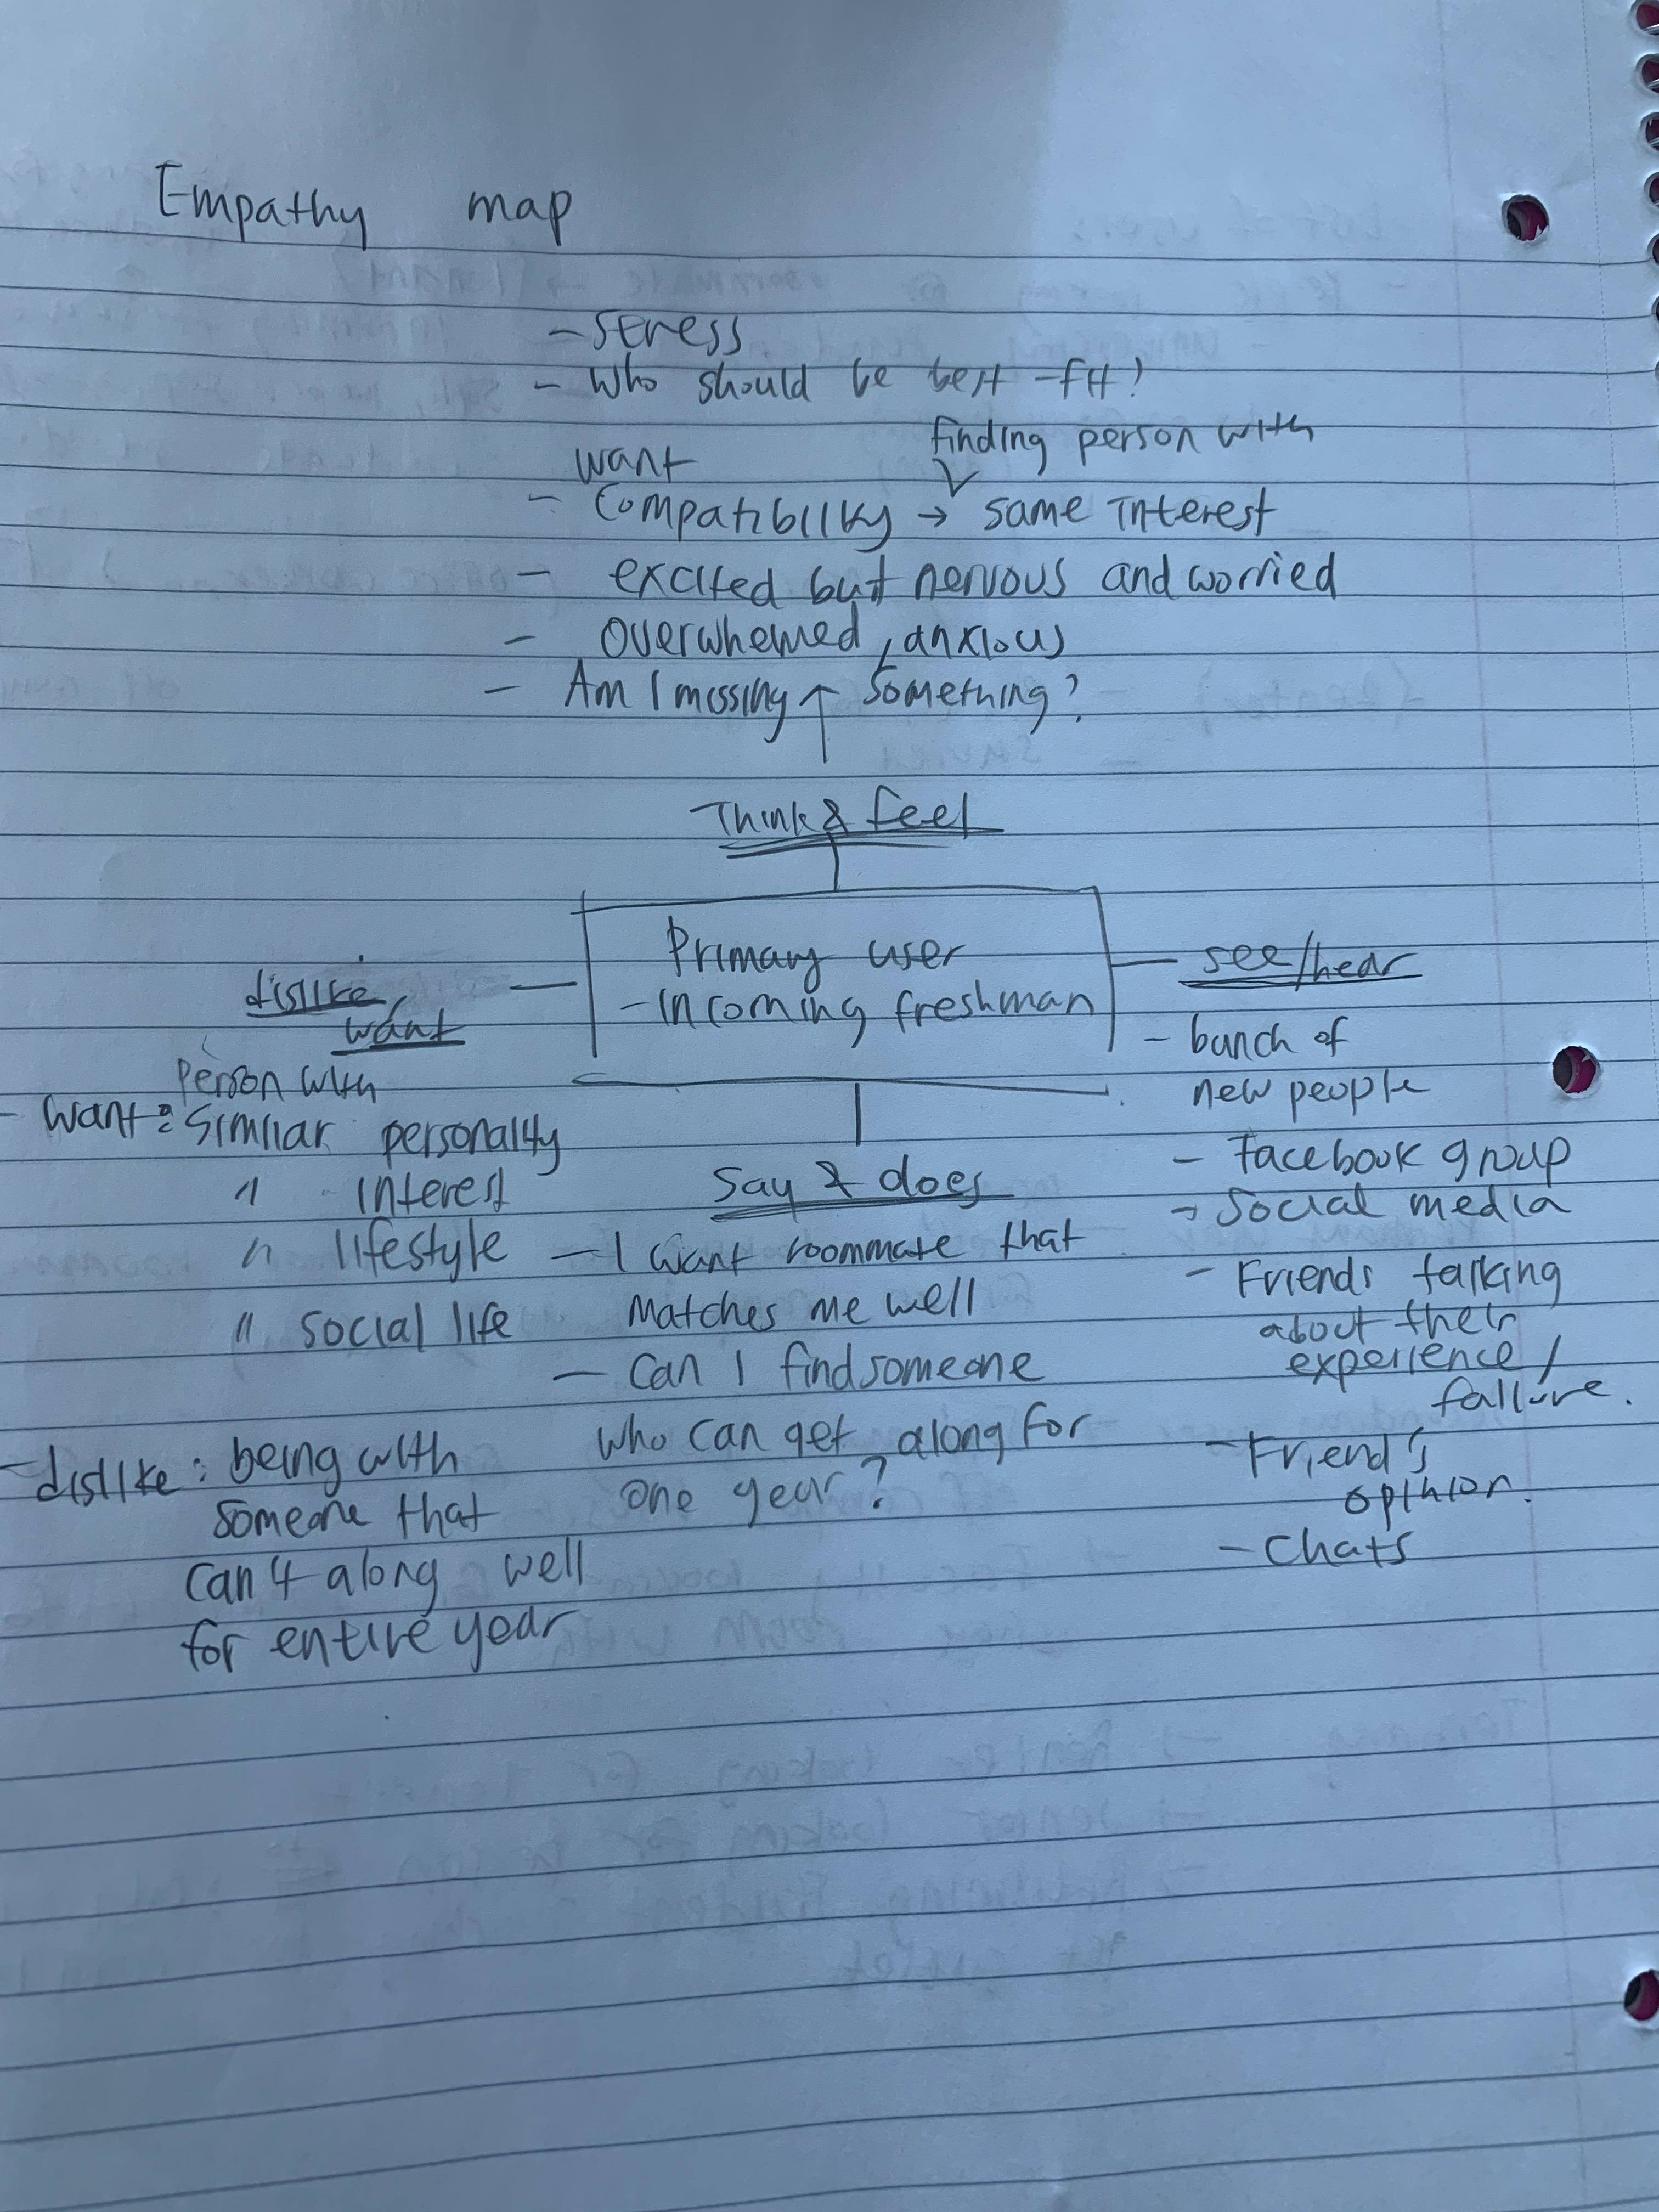 Empathy map
- stress
- who should be best-fit?
finding person with
want
- Compatibility → same interest
- excited but nervous and worried
- overwhemed, anxious
- Am I missing something?
Think & feel
Primary user
- Incoming freshman
dislike,
want
Person with
- want: similiar personality
" interest
" lifestyle
" social life
- dislike: being with
someone that
can't along well
for entire year
Say & does
- I want roommate that
matches me well
- Can I find someone
who can get along for
one year?
see/hear
- bunch of
new people
- Facebook group
→ Social media
- Friends talking
about their
experience/
failure.
- Friend's
opinion.
- Chats